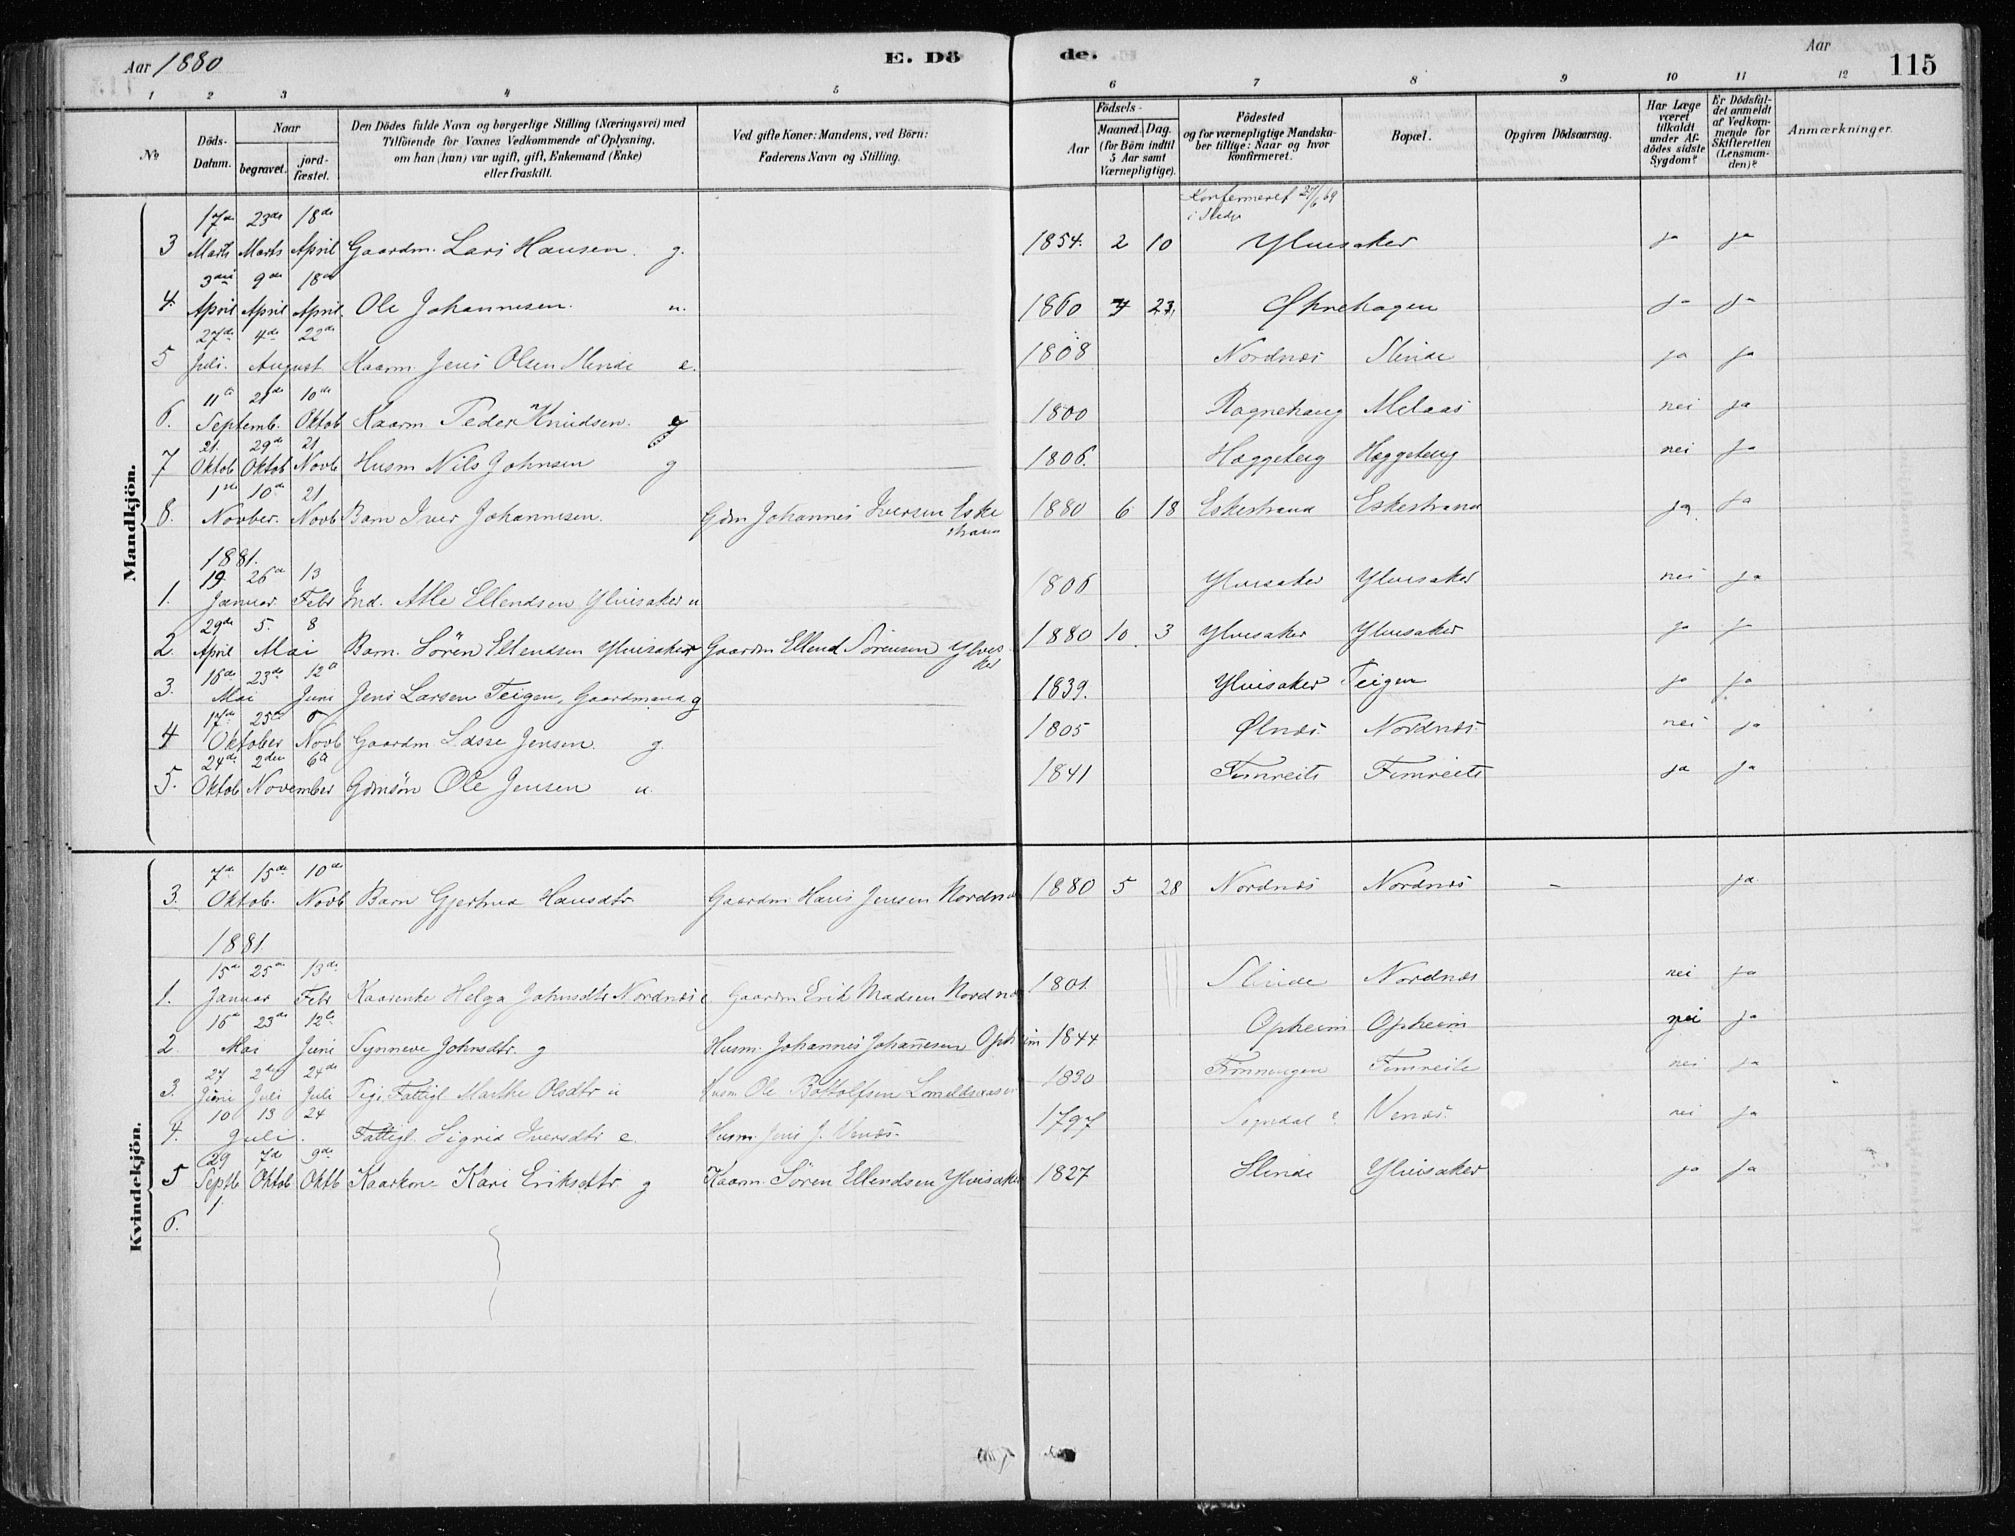 Aar 1880
E. Dö
de.
Aar
115
1 2 3 4 5 6 7 8 9 10 11 12
No
Döds-Datum.
Naar
begravet.
jord-fæstet.
Den Dödes fulde Navn og borgerlige Stilling (Næringsvei) med
Tilföiende for Voxnes Vedkommende af Oplysning,
om han (hun) var ugift, gift, Enkemand (Enke)
eller fraskilt.
Ved gifte Koner: Mandens, ved Börn:
Faderens Navn og Stilling.
Födsels-
Aar
Maaned. Dag.
(for Börn indtil
5 Aar samt
Værnepligtige).
Födested
og for værnepligtige Mandska-
ber tillige: Naar og hvor
konfirmeret.
Bopæl.
Opgiven Dödsaarsag.
Har Læge
været
tilkaldt
under Af-
dödes sidste
Sygdom?
Er Dödsfal-
det anmeldt
af Vedkom-
mende for
Skifteretten
(Lensman-
den)?
Anmærkninger.
Mandkjön.
Konfermeret 27/6 69
17de 23de 18de
3 Marts Marts April Gaardm. Lars Hansen. g. 1854. 2 10 Ylvisaker ja ja
3die 9de 18de
4. April April April Ole Johannesen. u. 1860 23 Øhnehagen ja ja
27de 4de 22de
5 Juli. August Kaarm Jens Olsen Slinde e. 1808 Nordnæs Slinde ja ja
11te 21de 10de
6. Septemb. Oktob Kaarm Peder Knudsen. g 1800 Ragnehaug Melaas nei ja
21. 29de 21
7 Oktob Oktob Novb Husm Nils Johnsen g 1806. Hæggeberg Hæggeberg nei ja
1ste 10de 21
8. Novber. Novb Barn Iver Johannesen. Gdm Johannes Iversen Eske
strand
1880 6 18 Eskestrand Eskestrand ja ja
1881.
19. 26de 13
1. Januar Febr Ind. Atle Ellendsen Ylvisaker u 1806 Ylvisaker Ylvisaker nei ja
29de 5. 8
2. April Mai Barn. Sören Ellendsen Ylvisaker Gaardm Ellend Sörensen Ylvis
aker
1880 10. 3 Ylvisaker Ylvisaker ja ja
16de 23de 12te
3. Mai Juni Jens Larsen Teigen, Gaardmand g 1839. Ylvisaker Teigen ja ja
17de 25de 6
4 Oktober Novb Gaardm Lasse Jensen. g. 1805 Ølnæs. Nordnæs. nei ja
24de 2den 6te
5. Oktob November Gdmsøn Ole Jensen u. 1841 Fimreite Fimreite ja ja
Kvindekjön.
7de 15de 10de
3. Oktob. Novb Barn Gjertrud Hansdtr. Gaardm Hans Jensen Nordnæs 1880 5 28 Nordnæs Nordnæs – ja
1881.
15de 25de 13de
1. Januar Febr Kaarenke Helga Johnsdtr Nordnæs e Gaardm Erik Madsen Nordnæs 1801. Slinde Nordnæs nei ja
16de 23de 12te
2. Mai Juni Synneve Johnsdtr. g Husm. Johannes Johannesen Opheim 1844 Opheim Opheim nei ja
27 2den 24de
3. Juni Juli Juli Pige Fattigl Marthe Olsdtr u Husm Ole Bottolfsen 1830 Fimreite nei ja
10 13 24
4. Juli. Fattigl. Sigrid Iversdtr e. Husm. Jens J. Venæs. 1797 Sogndal? Venæs. nei ja
29 7de 9de
5 Septb Oktob Oktb Kaarkone Kari Eriksdtr g Kaarm. Sören Ellendsen Ylvisaker 1827 Slinde Ylvisaker ja ja
1.
6.